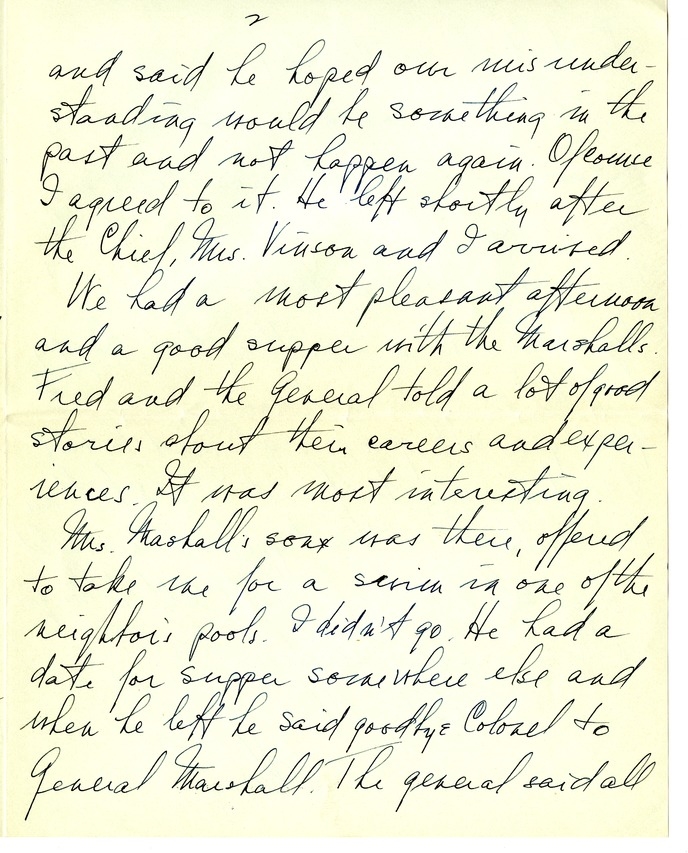 2
and said he hoped our misunder-
standing would be something in the
past and not happen again. Ofcourse
I agreed to it. He left shortly after
the Chief, Mrs. Vinson and I arrived.
We had a most pleasant afternoon
and a good supper with the Marshalls.
Fred and the General told a lot of good
stories about their careers and exper-
iences. It was most interesting.
Mrs. Mashall's son was there, offered
to take me for a swim in one of the
neighbors pools. I didn't go. He had a
date for supper somewhere else and
when he left he said goodbye Colonel to
General Marshall. The general said all